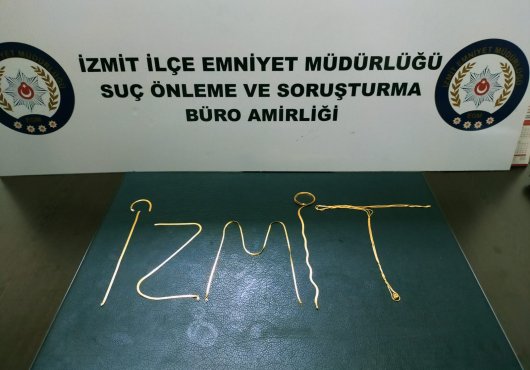 İZMİT İLÇE EMNİYET MÜDÜRLÜĞÜ
SUÇ ÖNLEME VE SORUŞTURMA
BÜRO AMİRLİĞİ
İZMİT